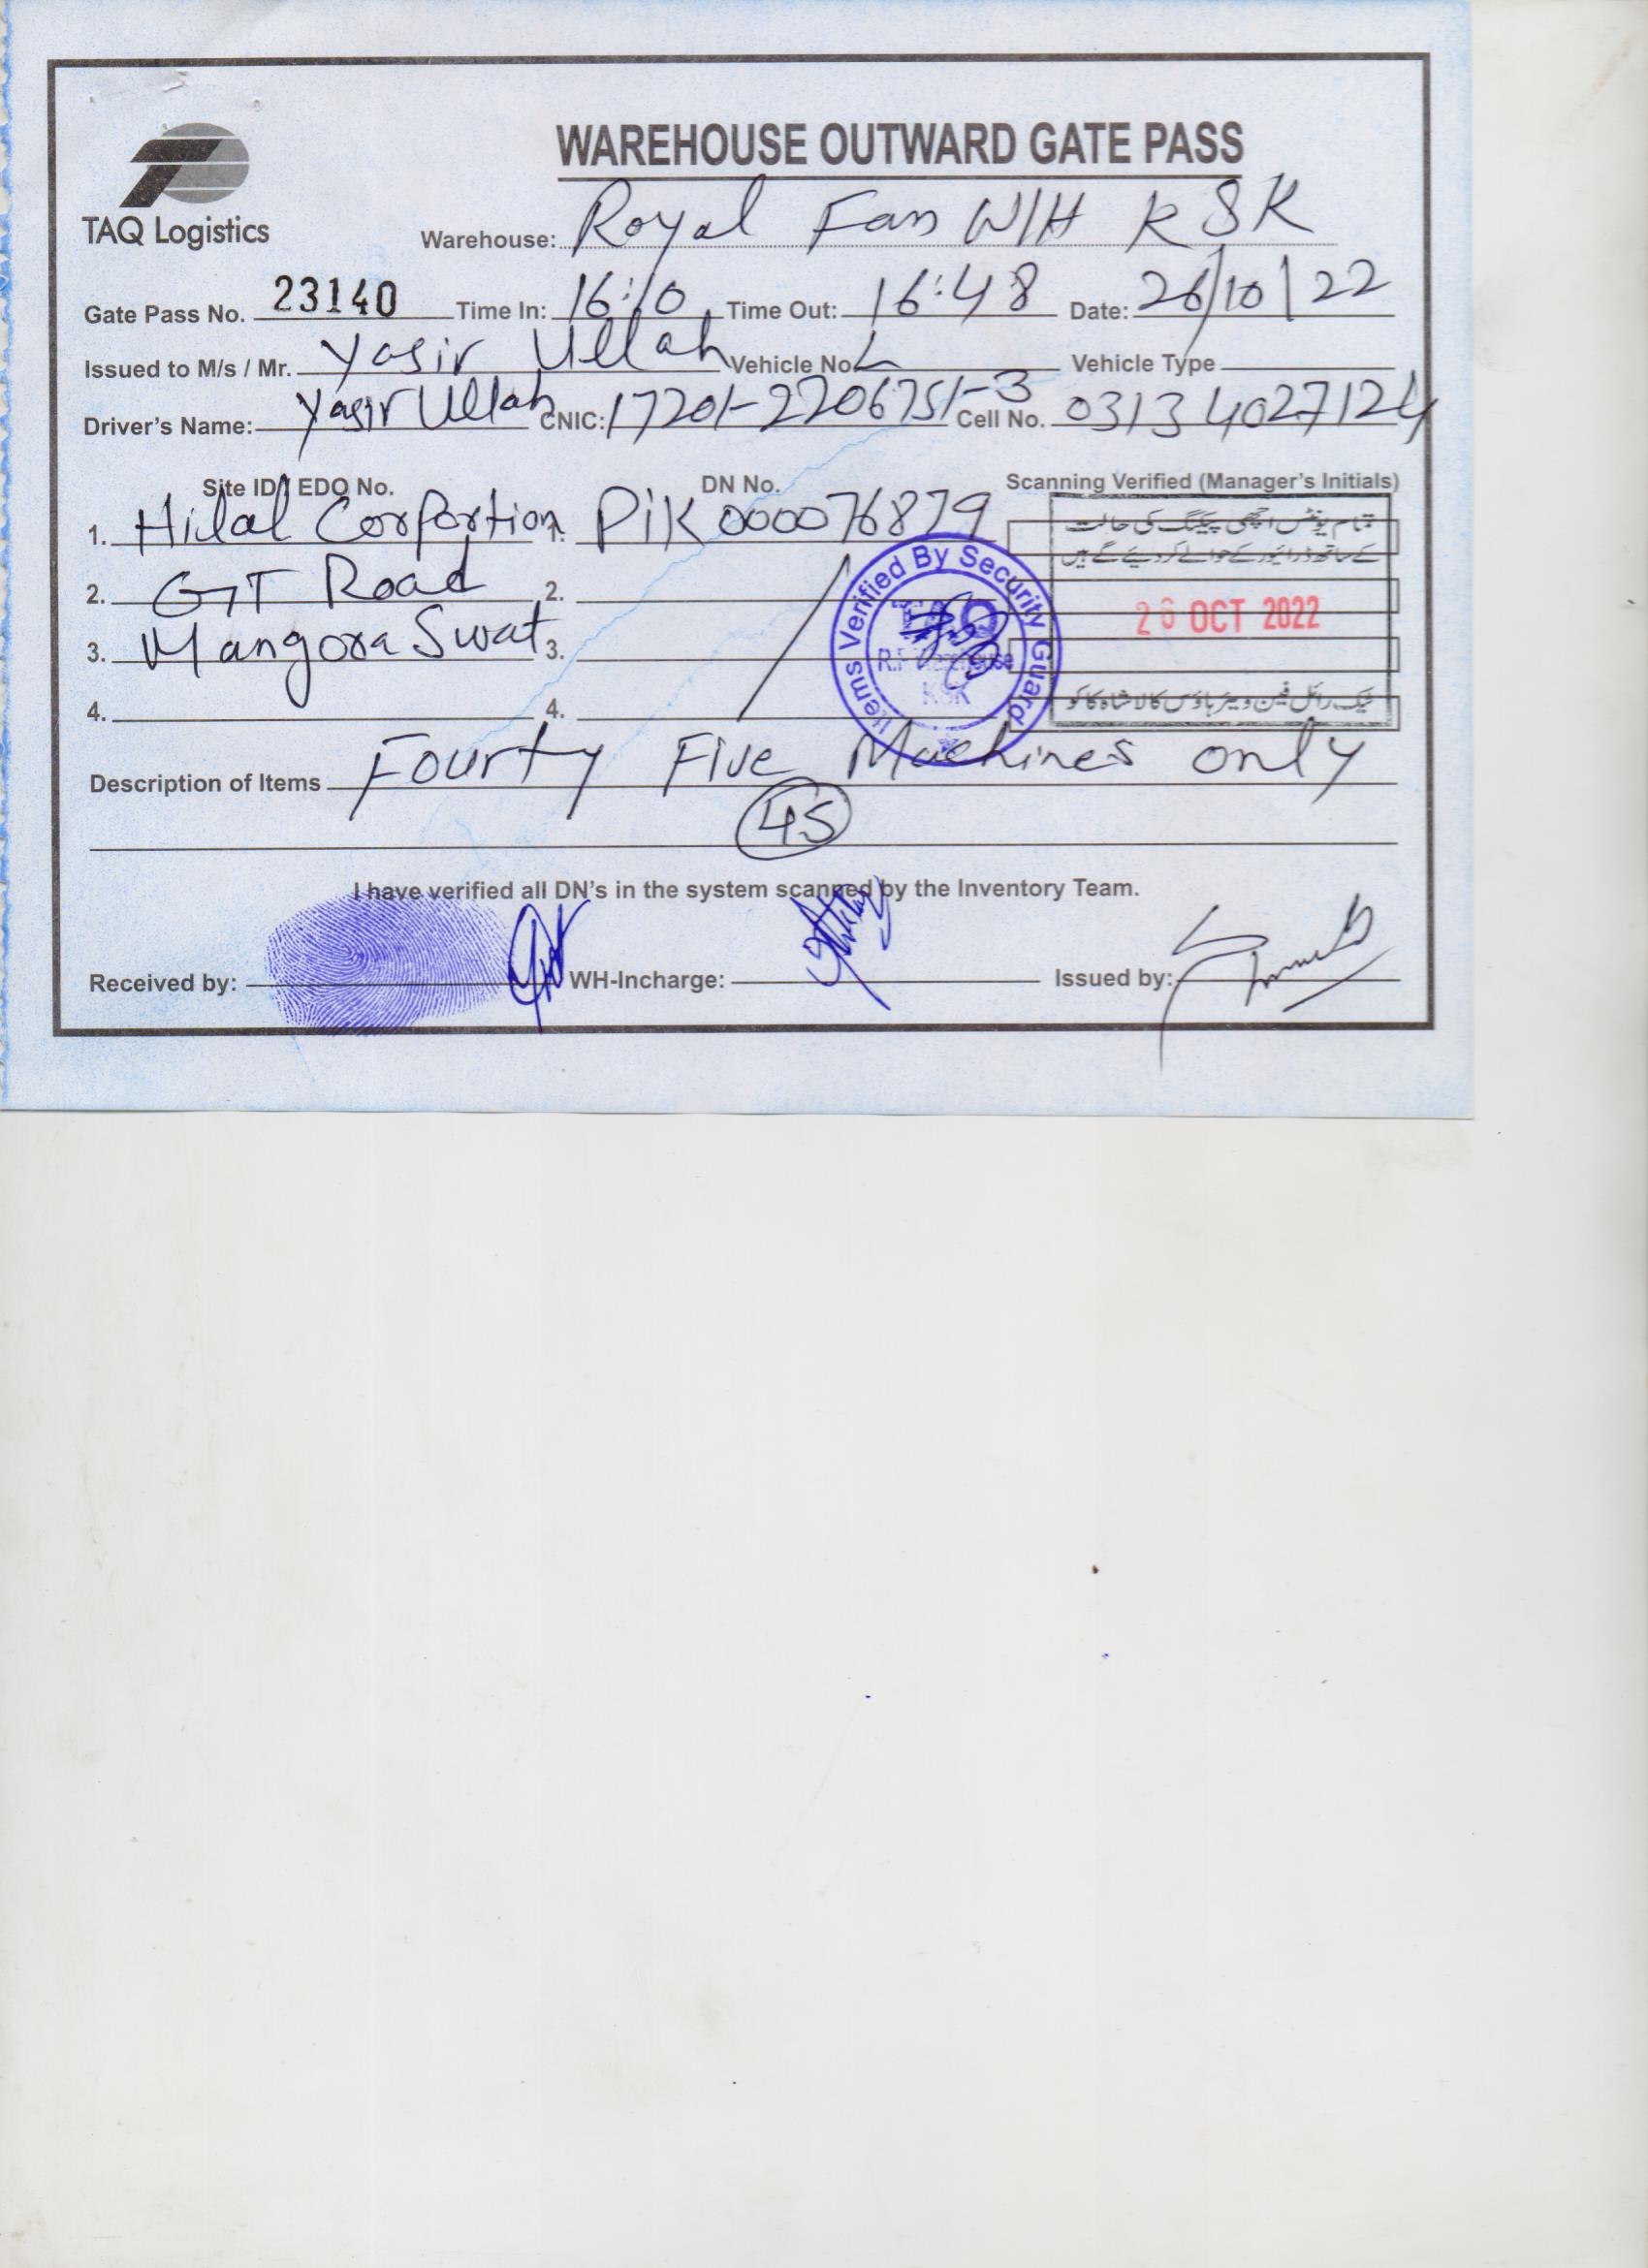 WAREHOUSE OUTWARD GATE PASS
TAQ Logistics
Warehouse: Royal Fan W/H KSK
Gate Pass No. 23140 Time In: 16:10 Time Out: 16:48 Date: 26/10/22
Issued to M/s / Mr. Yasir Ullah Vehicle No. Vehicle Type
Driver's Name: Yasir Ullah CNIC: 17201-2206751-3 Cell No. 0313 4027124
Site ID / EDO No. DN No. Scanning Verified (Manager's Initials)
1. Hilal Corportion 1. PiK000076879
تمام یونٹس اچھی پیکنگ کی حالت
کے ساتھ ڈرائیور کے حوالے کر دیئے گئے ہیں
2. GT Road 2.
26 OCT 2022
3. Mangora Swat 3.
4. 4.
ٹیک رائل فین ویئر ہاؤس کالا شاہ کاکو
Items Verified By Security Guard
R.F Warehouse
KSK
Description of Items Fourty Five Machines only
45
I have verified all DN's in the system scanned by the Inventory Team.
Received by: WH-Incharge: Issued by: